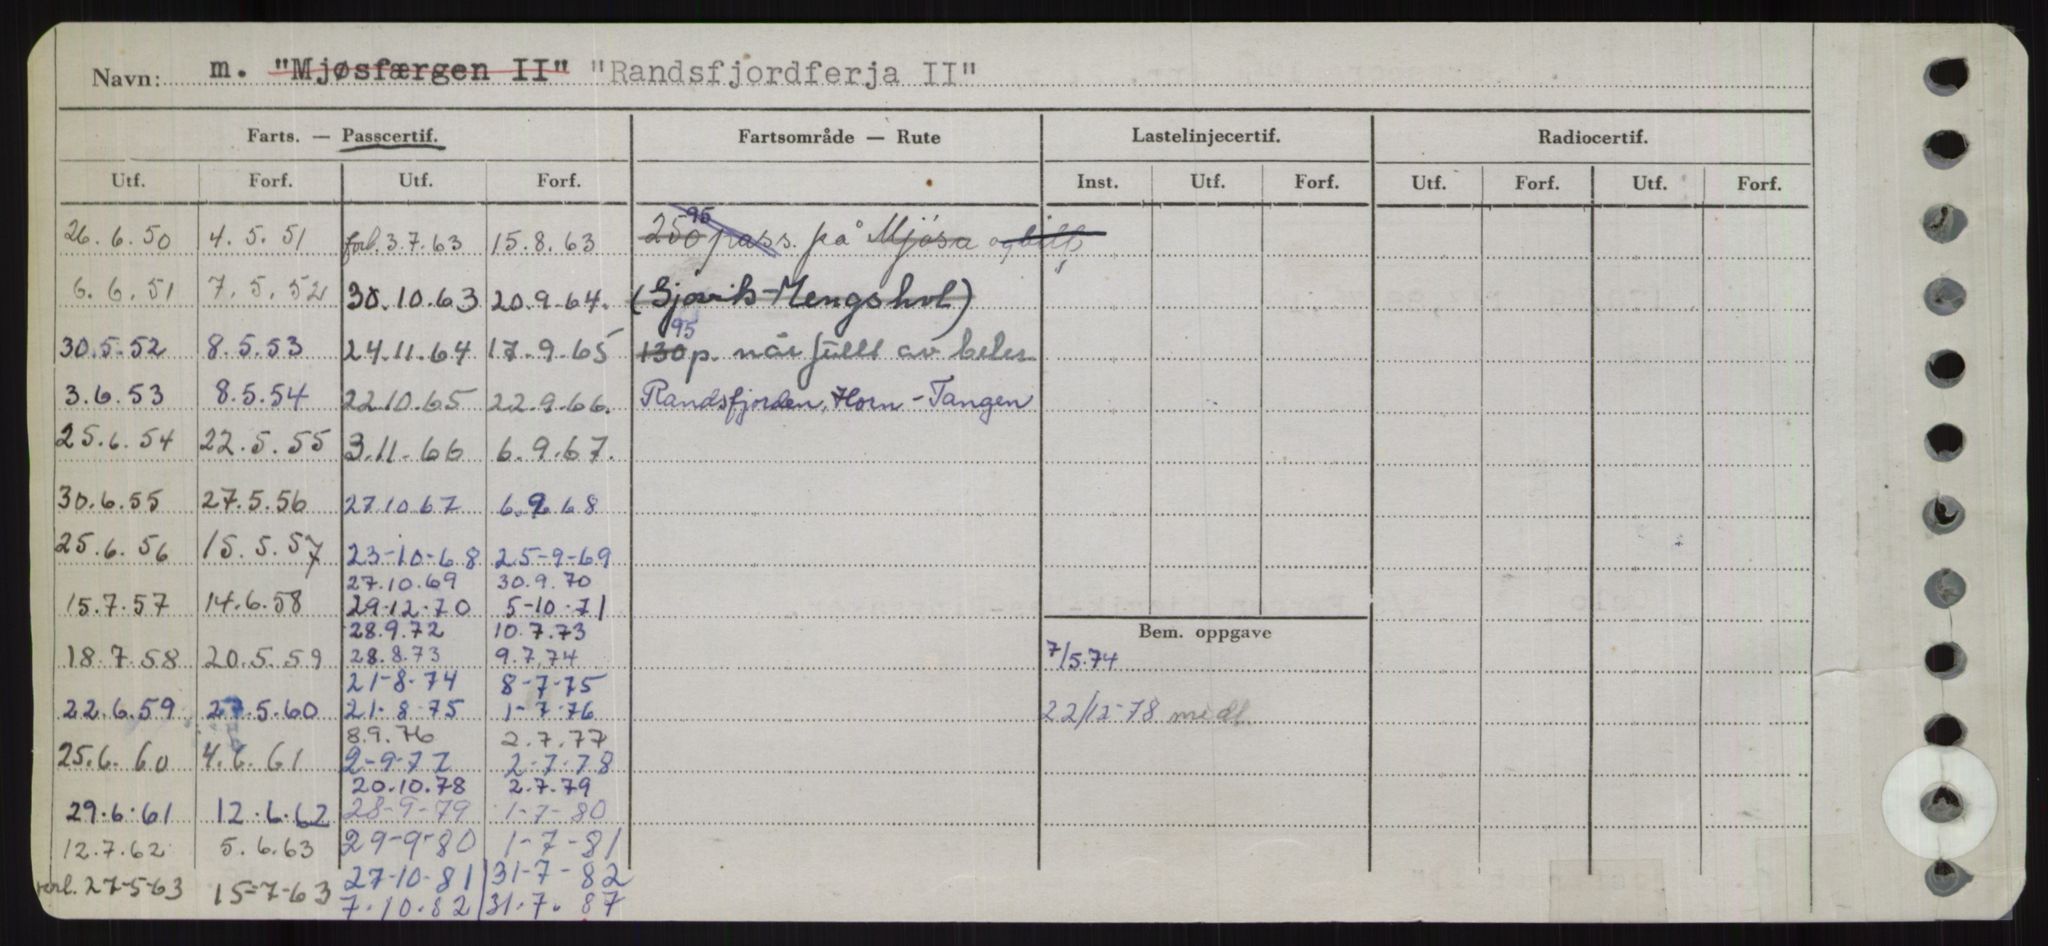 Navn: m. "Mjøsfærgen II" "Randsfjordferja II"
Farts. — Passcertif. Fartsområde — Rute Lastelinjecertif. Radiocertif.
Utf. Forf. Utf. Forf. Inst. Utf. Forf. Utf. Forf. Utf. Forf.
26.6.50 4.5.51 forl. 3.7.63 15.8.63 250 95 pass. på Mjøsa og
6.6.51 7.5.52 30.10.63 20.9.64. (Gjøvik-Mengshol)
30.5.52 8.5.53 24.11.64 17.9.65 130 95 p. når fullt av biler
3.6.53 8.5.54 22.10.65 22.9.66. Randsfjorden, Horn - Tangen
25.6.54 22.5.55 3.11.66 6.9.67.
30.6.55 27.5.56 27.10.67 6.9.68
25.6.56 15.5.57 23-10-68 25-9-69
27.10.69 30.9.70
15.7.57 14.6.58 29.12.70 5-10-71
28.9.72 10.7.73
Bem. oppgave
18.7.58 20.5.59 28.8.73 9.7.74 7/5.74
21-8-74 8-7-75
22.6.59 27.5.60 21-8-75 1-7-76 22/12-78 medl.
8.9.76 2.7.77
25.6.60 4.6.61 2-9-77 2-7-78
20.10.78 2.7.79
29.6.61 12.6.62 28-9-79 1-7-80
12.7.62 5.6.63 29-9-80 1-7-81
27-5-63 15-7-63 27-10-81 31-7-82
7.10.82 31.7.87